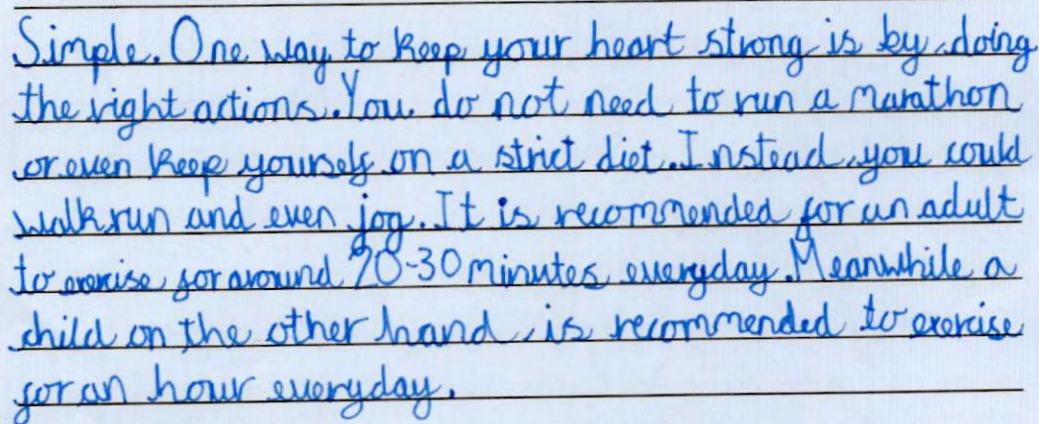 Simple. One way to keep your heart strong is by doing
the right actions. You do not need to run a marathon
or even keep yourself on a strict diet. Instead, you could
walk, run and even jog. It is recommended for an adult
to exercise for around 20-30 minutes everyday. Meanwhile a
child on the other hand, is recommended to exercise
for an hour everyday.